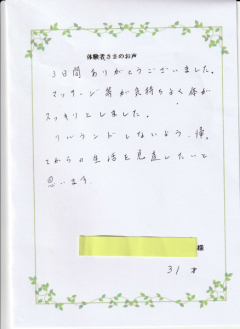 体験者さまのお声
3日間ありがとうございました。
マッサージ等が気持ちよく体が
スッキリとしました。
リバウンドしないよう、帰っ
てからの生活を見直したいと
思います。
様
31才